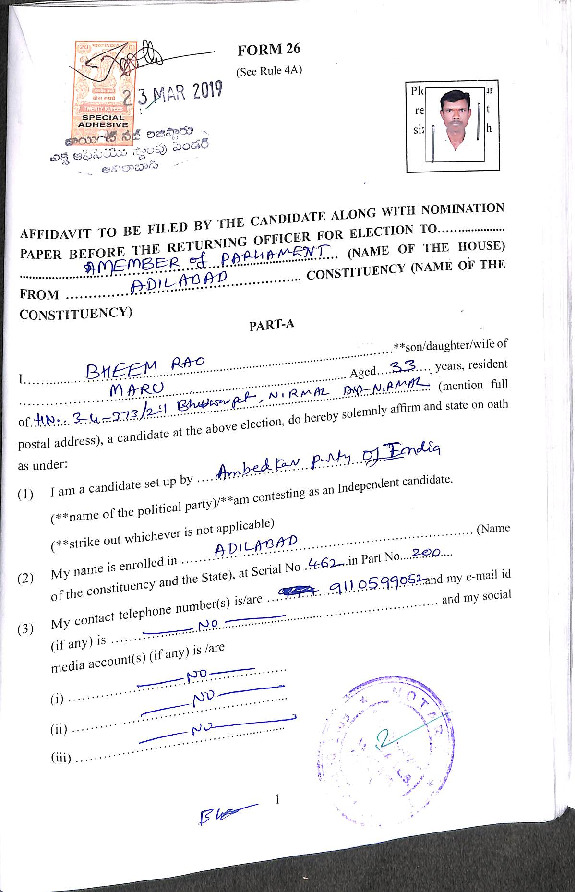 FORM 26
(See Rule 4A)
23 MAR 2019
SPECIAL
ADHESIVE
AFFIDAVIT TO BE FILED BY THE CANDIDATE ALONG WITH NOMINATION
PAPER BEFORE THE RETURNING OFFICER FOR ELECTION TO..................
A MEMBER of PARLIAMENT (NAME OF THE HOUSE)
FROM ADILABAD CONSTITUENCY (NAME OF THE
CONSTITUENCY)
PART-A
I BHEEM RAO **son/daughter/wife of
MARU Aged 33 years, resident
of NIRMAL (mention full
postal address), a candidate at the above election, do hereby solemnly affirm and state on oath
as under:
(1) I am a candidate set up by Ambedkar party of India
(**name of the political party)/**am contesting as an Independent candidate.
(**strike out whichever is not applicable)
(2) My name is enrolled in ADILABAD (Name
of the constituency and the State), at Serial No 462 in Part No 200
(3) My contact telephone number(s) is/are 9110599052 and my e-mail id
(if any) is NO and my social
media account(s) (if any) is /are
(i) NO
(ii) NO
(iii) NO
1